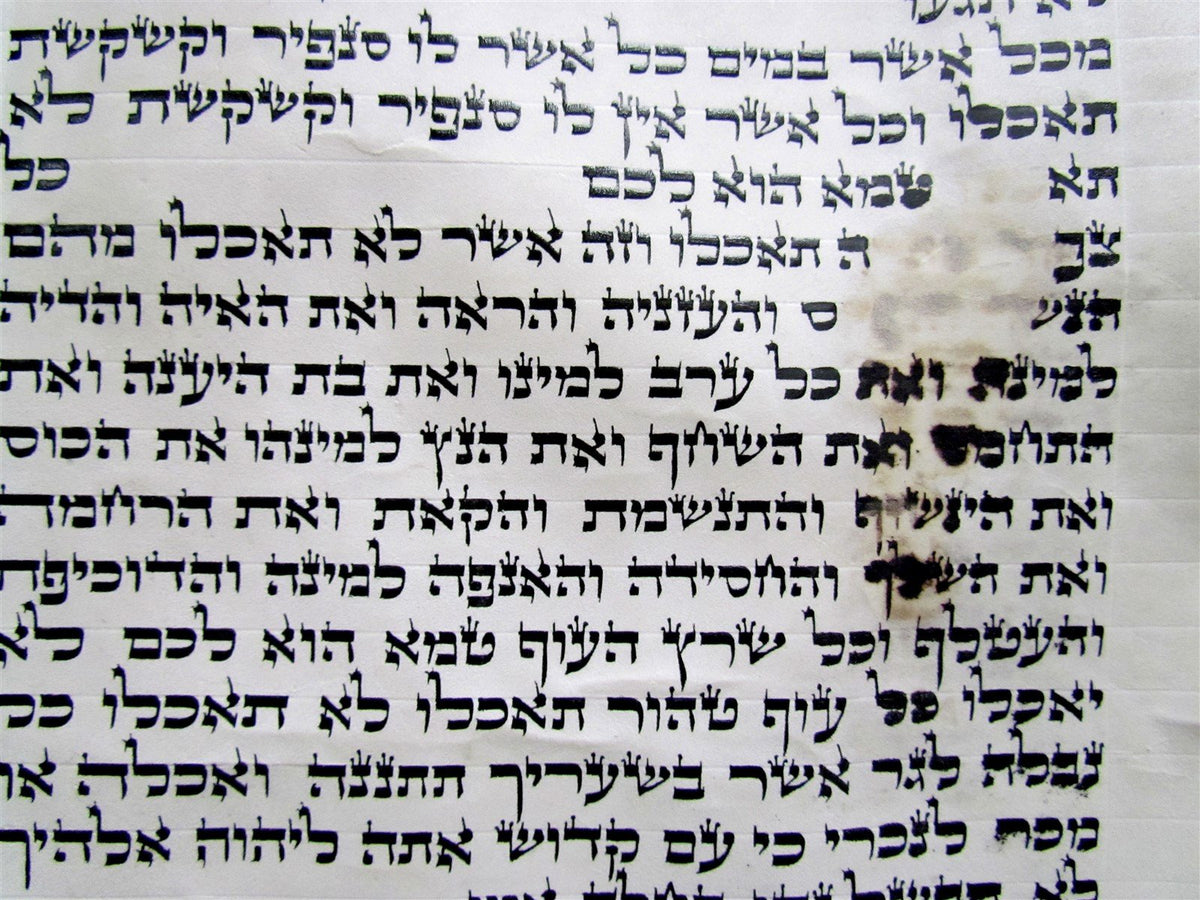 לא תגעו
מכל אשר במים כל אשר לו סנפיר וקשקשת
תאכלו וכל אשר אין לו סנפיר וקשקשת לא
תא טמא הוא לכם כל
צפ ה תאכלו וזה אשר לא תאכלו מהם
הנש ס והעזניה והראה ואת האיה והדיה
למינה ואת כל ערב למינו ואת בת היענה ואת
ואת השחף ואת הנץ למינהו את הכוס
ואת הינשוף והתנשמת והקאת ואת הרחמה
ואת והחסידה והאנפה למינה והדוכיפת
והעטלף וכל שרץ העוף טמא הוא לכם לא
יאכלו כל עוף טהור תאכלו לא תאכלו כל
נבלה לגר אשר בשעריך תתננה ואכלה או
מכר לנכרי כי עם קדוש אתה ליהוה אלהיך
לא תבשל גדי בחלב אמו